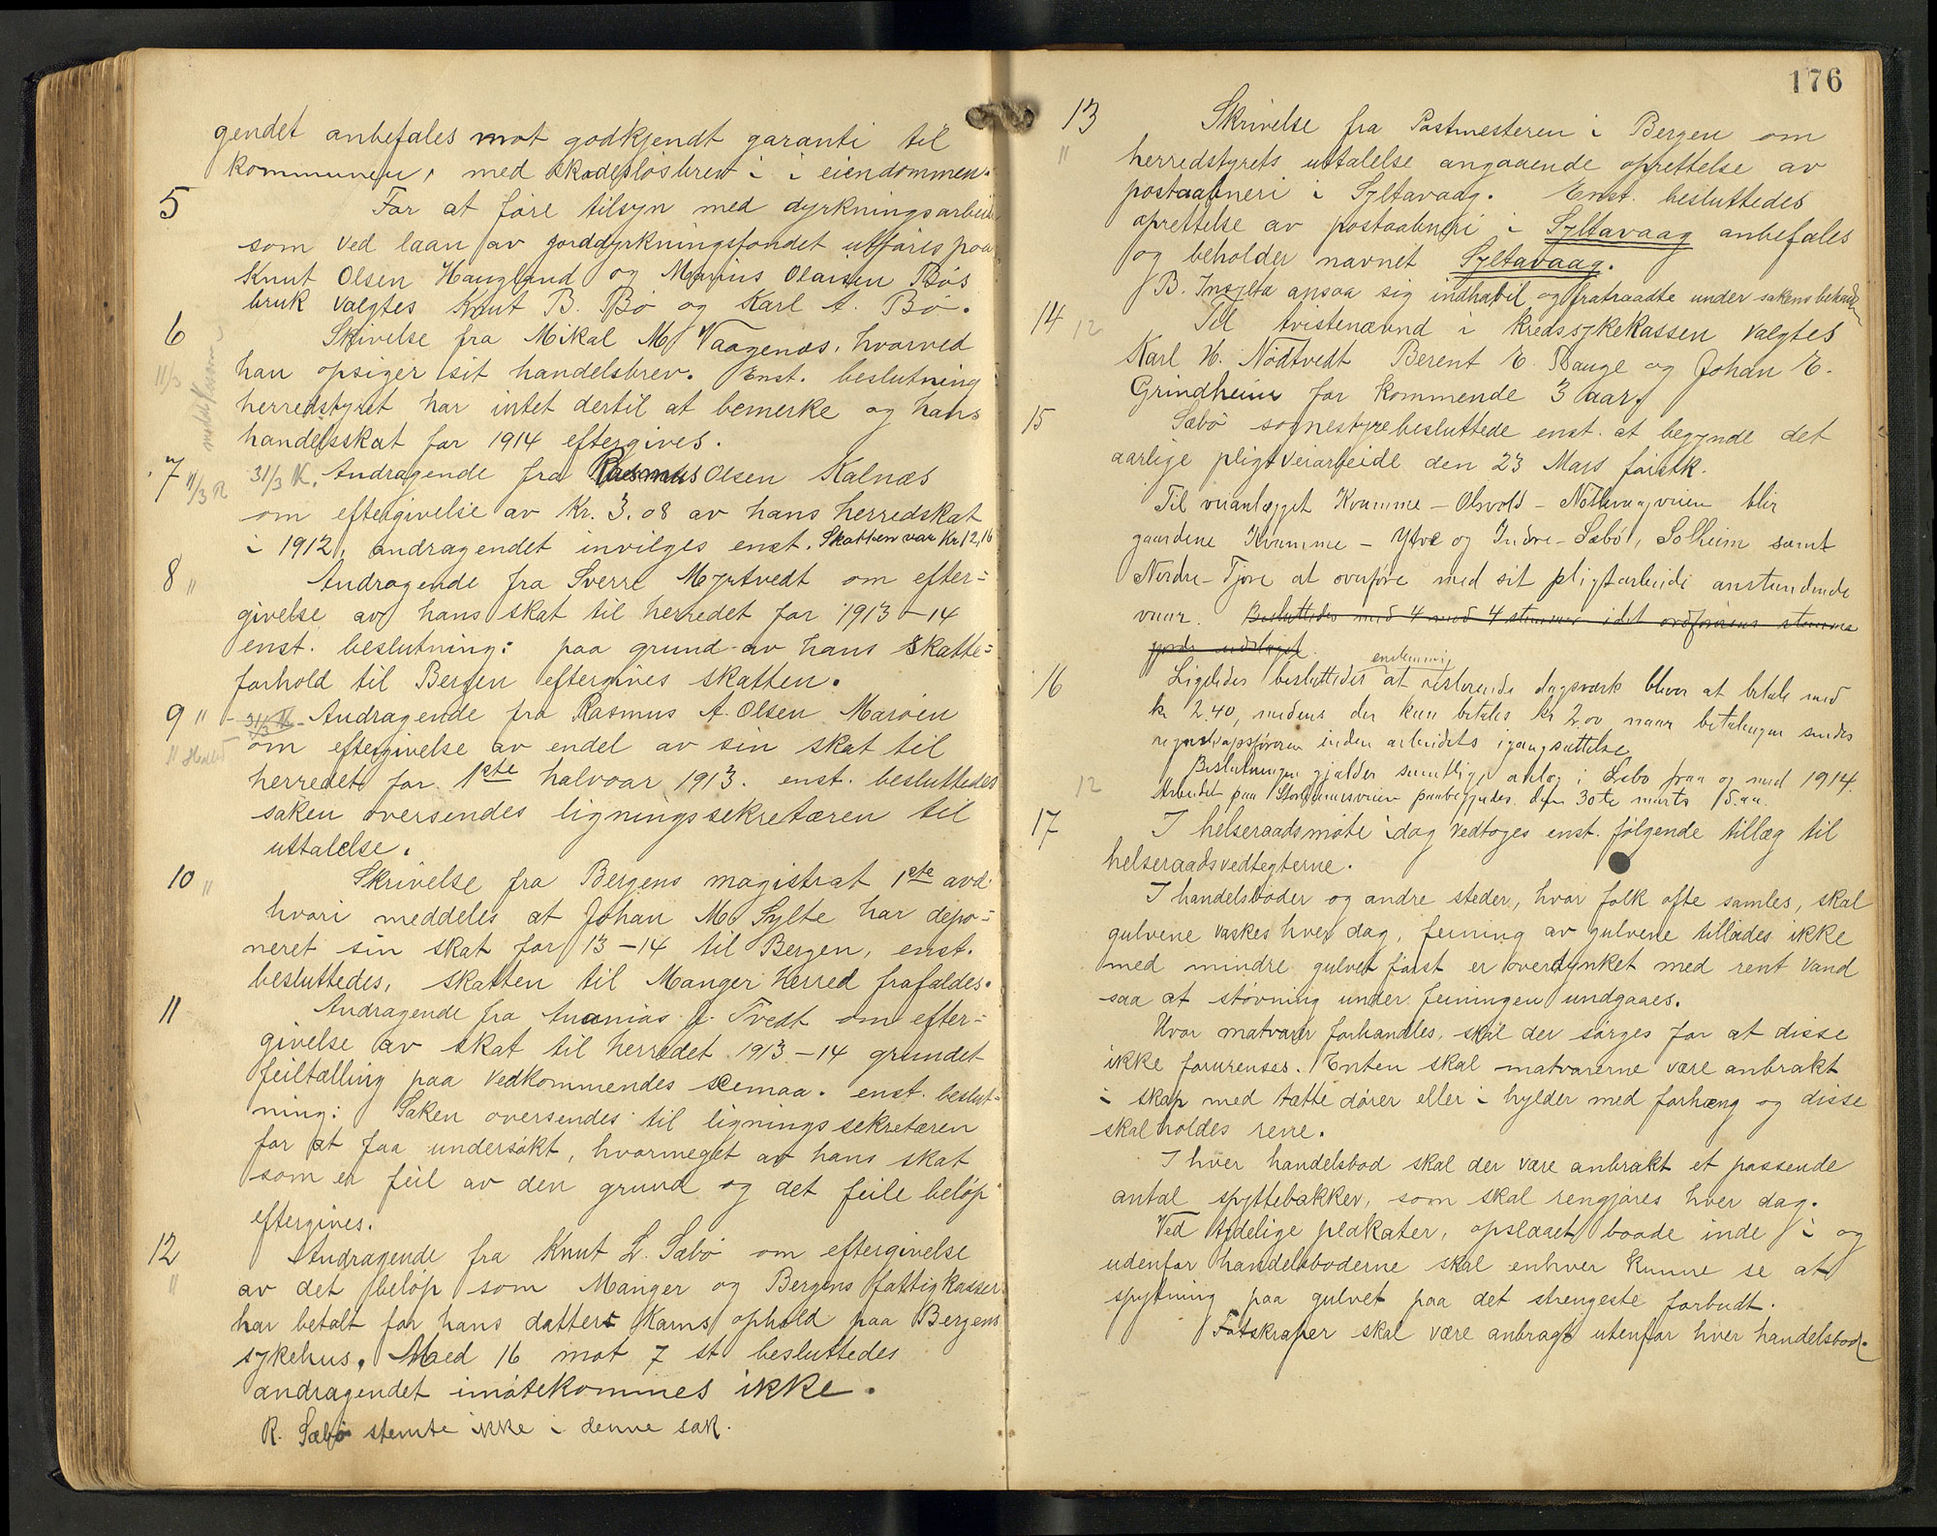 gendet anbefales mot godkjendt garanti til
kommunen, med skadesløsbrev i eiendommen.
5 For at føre tilsyn med dyrkningsarbeide
som ved laan av jorddyrkningsfondet utføres paa
Knut Olsen Haugland og Marius Olaisen Bøs
bruk valgtes Knut B. Bø og Karl A. Bø.
6 Skivelse fra Mikal M. Vaagenæs, hvorved
11/3 han opsiger sit handelsbrev. Enst. beslutning
herredstyret har intet dertil at bemerke og hans
handelsskat for 1914 eftergives.
7 11/3 R 31/3 K. Andragende fra Rasmus Olsen Kalnæs
om eftergivelse av Kr. 3.08 av hans herredskat
i 1912, andragendet invilges enst. Skatten var Kr 12,16
8 " Andragende fra Sverre Myrtvedt om efter=
givelse av hans skat til herredet for 1913-14
enst. beslutning: paa grund av hans skatte=
forhold til Bergen eftergives skatten.
9 " 31/3 K. Andragende fra Rasmus A. Olsen Marøen
om eftergivelse av endel av sin skat til
herredet for 1ste halvaar 1913. enst. besluttedes
saken oversendes ligningssekretæren til
uttalelse.
10 " Skrivelse fra Bergens magistrat 1ste avd.
hvori meddeles at Johan M. Sylte har depo=
neret sin skat for 13-14 til Bergen, enst.
besluttedes, skatten til Manger herred frafaldes.
11 Andragende fra Ananias J. Tvedt om efter=
givelse av skat til herredet 1913-14 grundet
feiltælling paa vedkommendes scemaa. enst. beslut=
ning: Saken oversendes til ligningssekretæren
for at faa undersøkt, hvormeget av hans skat
som er feil av den grund og det feile beløp
eftergives.
12 Andragende fra Knut L. Sæbø om eftergivelse
" av det beløp som Manger og Bergens fattigkasser
har betalt for hans datters Karns ophold paa Bergens
sykehus. Med 16 mot 7 st besluttedes
andragendet imøtekommes ikke.
R. Sæbø stemte ikke i denne sak.
176
13 Skrivelse fra Postmesteren i Bergen om
" herredstyrets uttalelse angaaende oprettelse av
postaabneri i Syltavaag. Enst. besluttedes
oprettelse av postaabneri i Syltavaag anbefales
og beholder navnet Syltavaag.
B. Insylta ansaa sig indhabil og fratraadte under sakens behandl
14 12 Til tvistenævnd i kredssykekassen valgtes
Karl H. Nødtvedt Berent E. Bauge og Johan E.
Grindheim for kommende 3 aar.
15 Sæbø sognestyre besluttede enst. at begynde det
aarlige pligtveiarbeide den 23 Mars førstk.
Til veianlægget Kvamme - Olsvold - Nøtlevaagveien blir
gaardene Kvamme - Ytre og Indre - Sæbø, Solheim samt
Nordre - Tjore at overføre med sit pligtarbeide anstundende
vaar. Besluttedes med 4 mod 4 stemmer idet ordførerens stemme
gjorde udslaget.
enstemmig
16 Ligeledes besluttedes at resterende dagsværk bliver at betale med
kr 2.40, medens der kun betales kr 2.00 naar betalingen sendes
regnskapsføreren inden arbeidets igangsættelse
Beslutningen gjælder samtlige anlæg i Sæbø fraa og med 1914.
12 Arbeidet paa veien paabegyndes den 30te marts d.aa.
17 I helseraadsmøte idag vedtoges enst. følgende tillæg til
helseraadsvedtegterne.
I handelsboder og andre steder, hvor folk ofte samles, skal
gulvene vaskes hver dag, feining av gulvene tillades ikke
med mindre gulvet først er overdynket med rent vand
saa at støvning under feiningen undgaaes.
Hvor matvarer forhandles, skal der sørges for at disse
ikke forurenses. Enten skal matvarerne være anbrakt
i skap med tætte dører eller i hylder med forhæng og disse
skal holdes rene.
I hver handelsbod skal der være anbrakt et passende
antal spyttebakker, som skal rengjøres hver dag.
Ved tydelige plakater, opslaaet baade inde i og
udenfor handelsboderne skal enhver kunne se at
spytning paa gulvet paa det strengeste forbudt.
Fotskraper skal være anbragt utenfor hver handelsbod.